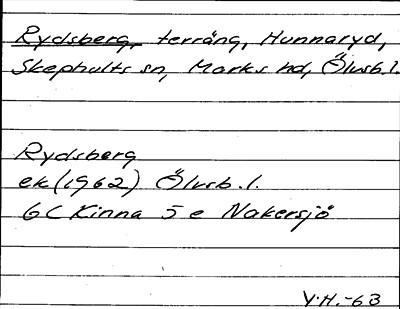 Rydsberg, terräng, Hunnaryd,
Skephults sn, Marks hd, Älvsb.l.
Rydsberg
ek (1962) Älvsb.l.
6C Kinna 5 e Nakersjö
V.H.-63